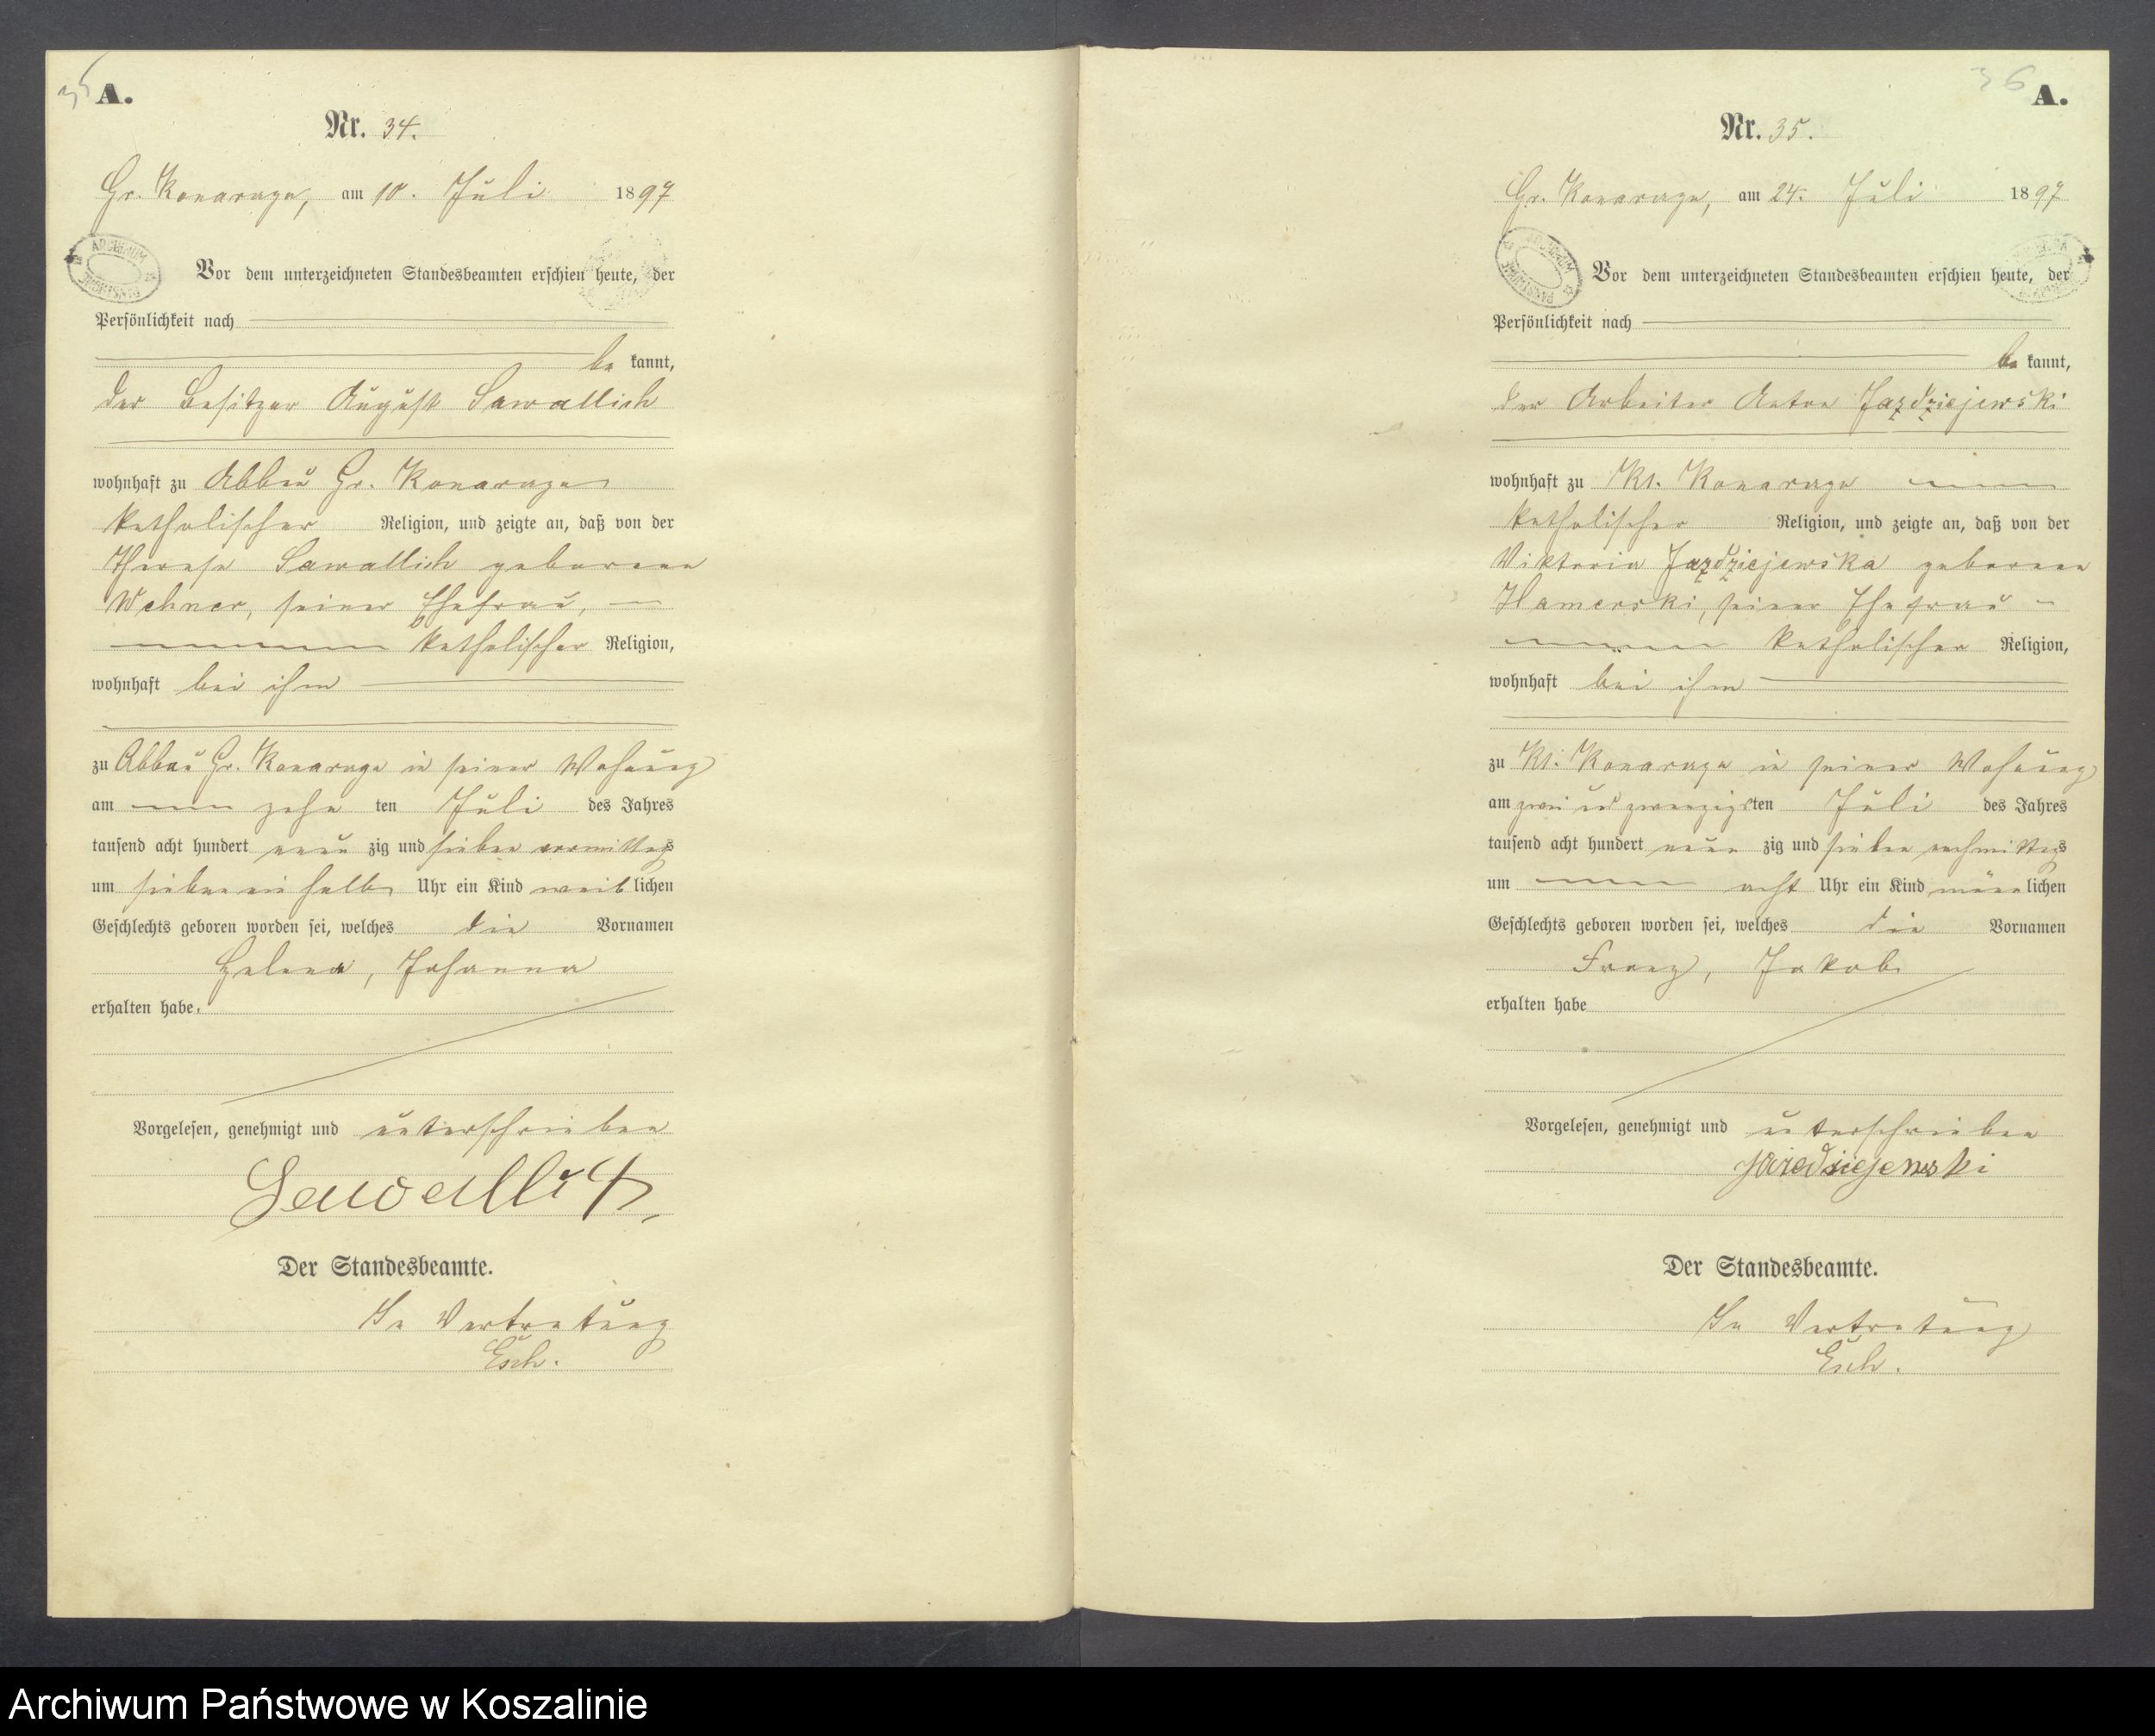 35
A.
Nr. 34.
Gr. Konarzyn, am 10. Juli 1897
ARCHIWUM PAŃSTWOWE
Vor dem unterzeichneten Standesbeamten erschien heute, der
Persönlichkeit nach
be kannt,
der Besitzer August Sawallich
wohnhaft zu Abbau Gr. Konarzyn
katholischer Religion, und zeigte an, daß von der
Therese Sawallich geborenen
Wehner, seiner Ehefrau,
katholischer Religion,
wohnhaft bei ihm
zu Abbau Gr. Konarzyn in seiner Wohnung
am zehn ten Juli des Jahres
tausend acht hundert neun zig und sieben vormittags
um siebeneinhalb Uhr ein Kind weib lichen
Geschlechts geboren worden sei, welches die Vornamen
Helena, Johanna
erhalten habe.
Vorgelesen, genehmigt und unterschrieben
Sawallich
Der Standesbeamte.
In Vertretung
Esch.
36
A.
Nr. 35.
Gr. Konarzyn, am 24. Juli 1897
ARCHIWUM PAŃSTWOWE
Vor dem unterzeichneten Standesbeamten erschien heute, der
Persönlichkeit nach
be kannt,
der Arbeiter Anton Jazdziejewski
wohnhaft zu Kl. Konarzyn
katholischer Religion, und zeigte an, daß von der
Viktoria Jazdziejewska geborenen
Hamerski, seiner Ehefrau
katholischer Religion,
wohnhaft bei ihm
zu Kl. Konarzyn in seiner Wohnung
am zwei und zwanzigsten Juli des Jahres
tausend acht hundert neun zig und sieben nachmittags
um acht Uhr ein Kind männ lichen
Geschlechts geboren worden sei, welches die Vornamen
Franz, Jakob
erhalten habe
Vorgelesen, genehmigt und unterschrieben
Jazedsiejewski
Der Standesbeamte.
In Vertretung
Esch.
Archiwum Państwowe w Koszalinie